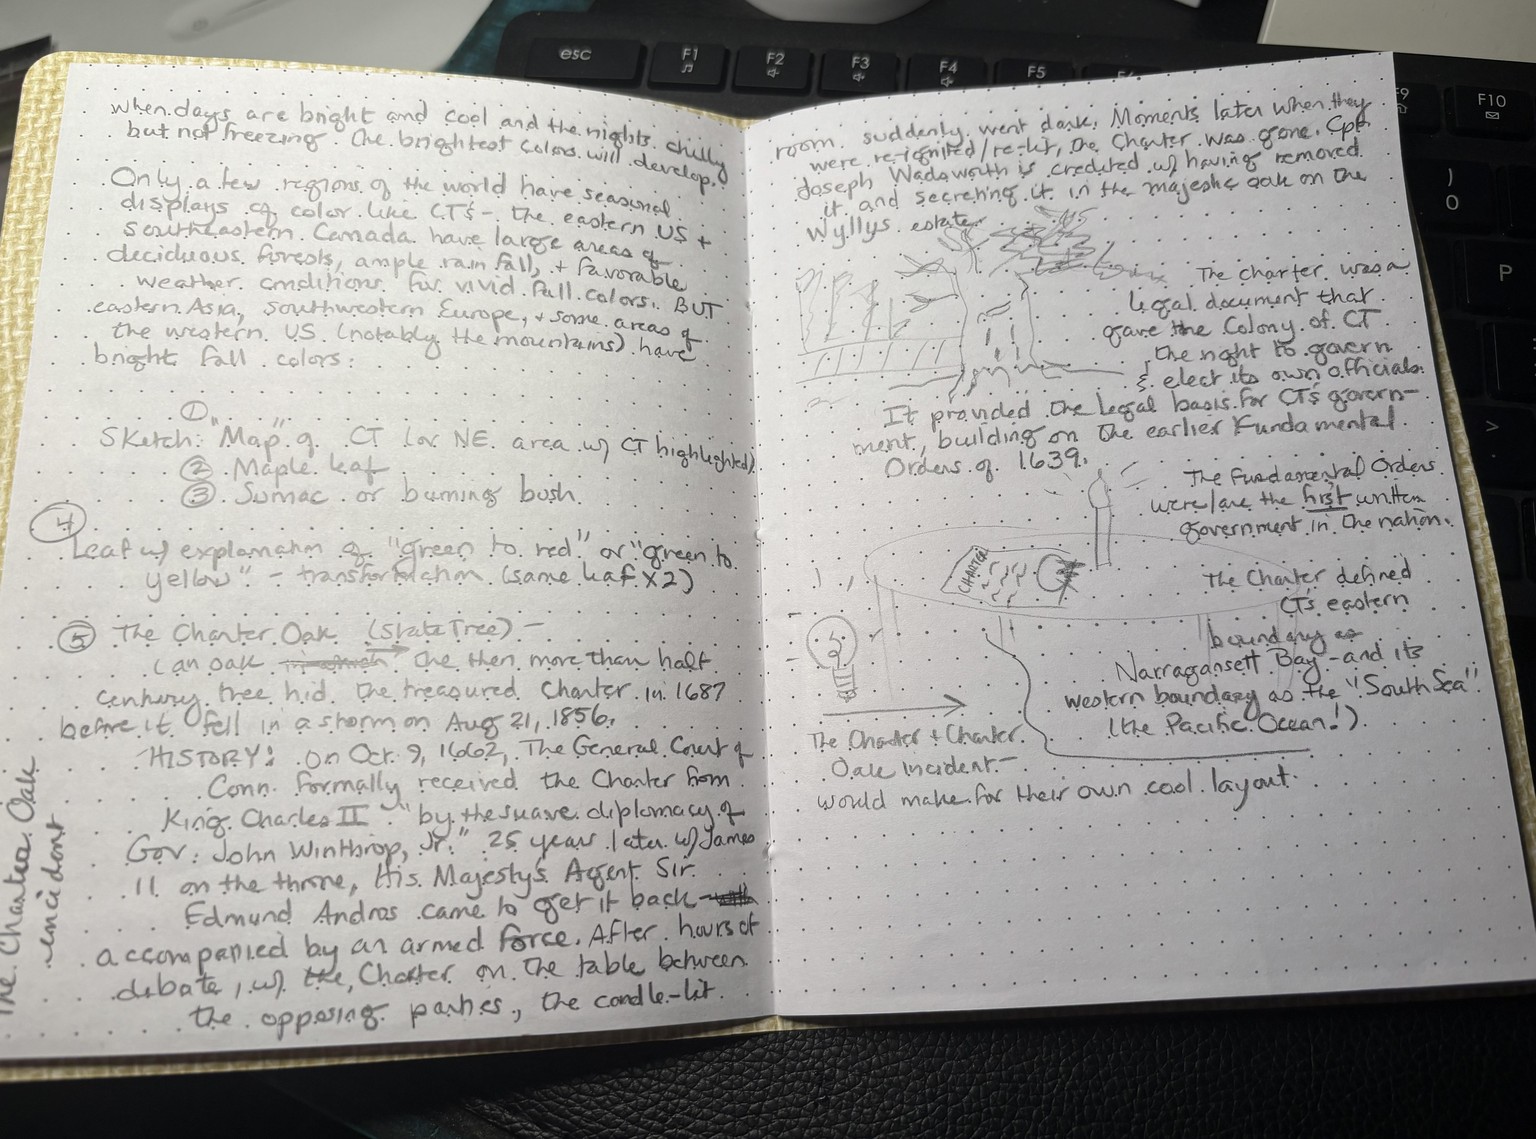 when days are bright and cool and the nights chilly
but not freezing. The brightest colors will develop.
Only a few regions of the world have seasonal
displays of color like CT's - the eastern US +
southeastern Canada have large areas of
deciduous forests, ample rain fall, + favorable
weather conditions for vivid fall colors. BUT
eastern Asia, southwestern Europe, + some areas of
the western US (notably the mountains) have
bright fall colors.
①
Sketch: "Map" of CT (or NE area w/ CT highlighted)
② Maple leaf
③ Sumac or burning bush
④
Leaf w/ explanation of "green to red" or "green to
yellow" - transformation (same leaf X2)
⑤ The Charter Oak (State Tree) -
(an oak The then more than half
century tree hid the treasured Charter in 1687
before it fell in a storm on Aug 21, 1856.
HISTORY: On Oct. 9, 1662, The General Court of
Conn. formally received the Charter from
King Charles II "by the suave diplomacy of
Gov. John Winthrop, Jr." 25 years later w/ James
II on the throne, His Majesty's Agent Sir
Edmund Andros came to get it back
accompanied by an armed force. After hours of
debate, w/ the Charter on the table between
the opposing parties, the candle-lit
The Charter Oak
incident
room suddenly went dark. Moments later when they
were re-ignited/re-lit, the Charter was gone. Cpt
Joseph Wadsworth is credited w/ having removed
it and secreting it in the majestic oak on the
Wyllys estate.
The charter was a
legal document that
gave the Colony of CT
the right to govern
& elect its own officials.
It provided the legal basis for CT's govern-
ment, building on the earlier Fundamental
Orders of 1639.
The Fundamental Orders
were/are the first written
government in the nation.
CHARTER
The Charter defined
CT's eastern
boundary as
Narragansett Bay - and its
western boundary as the "South Sea"
(the Pacific Ocean!).
The Charter + Charter
Oak Incident -
would make for their own cool layout.
esc
F1
F2
F3
F4
F5
F9
F10
)
0
P
>